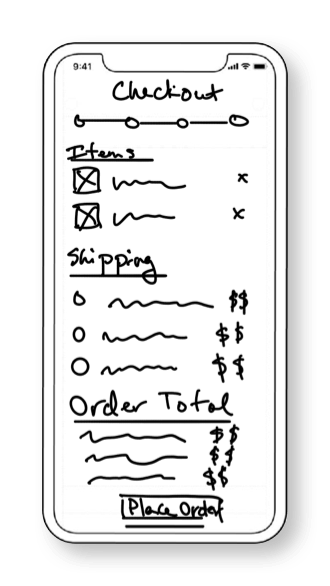 9:41
Checkout
Items
x
x
Shipping
$$
$$
$$
Order Total
$$
$$
$$
Place Order